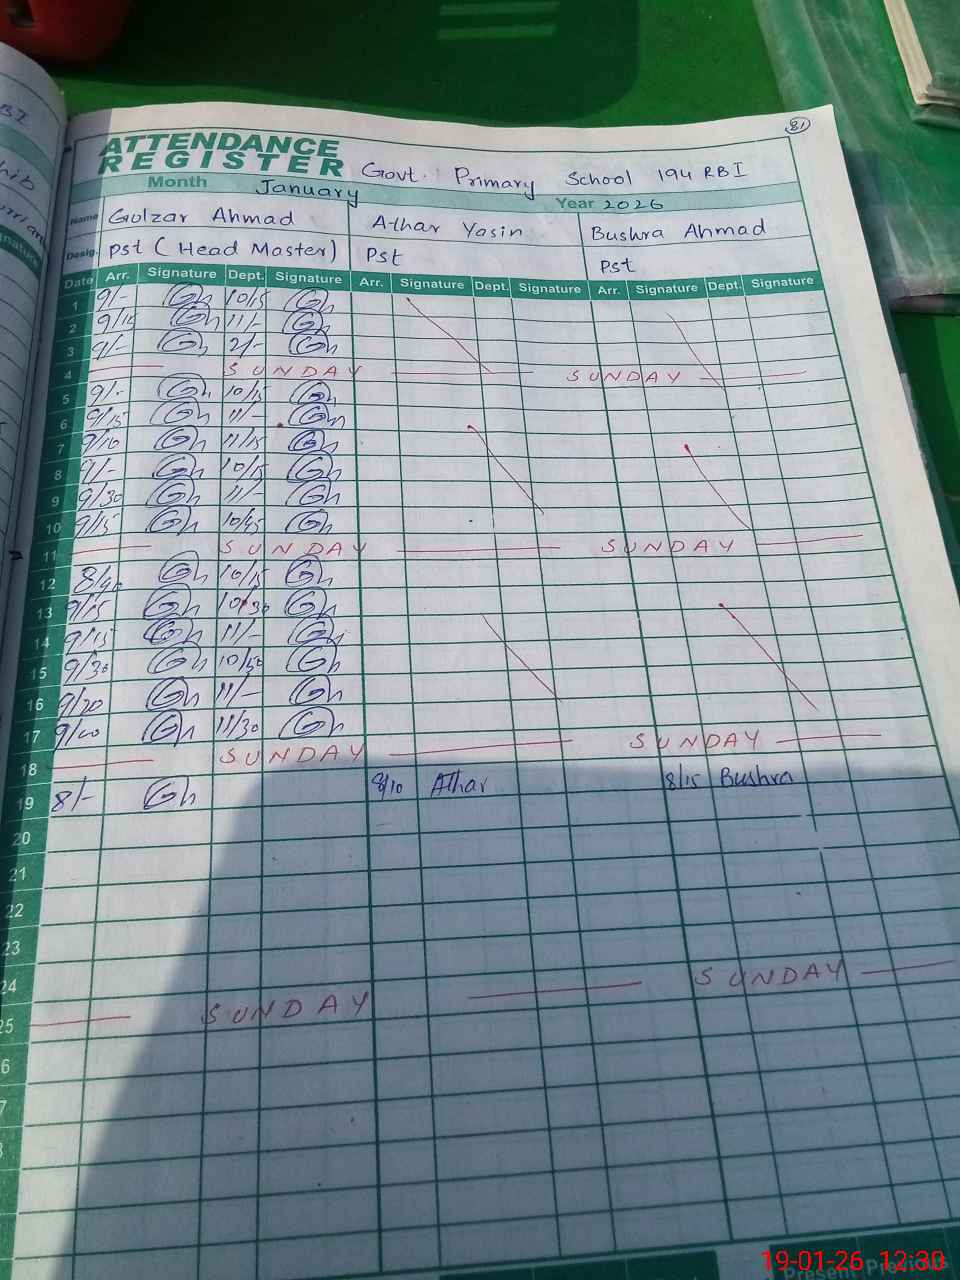 81
ATTENDANCE
REGISTER
Govt. Primary School 194 RBI
Month January Year 2026
Name Gulzar Ahmad Athar Yasin Bushra Ahmad
Desig. Pst (Head Master) Pst Pst
Date Arr. Signature Dept. Signature Arr. Signature Dept. Signature Arr. Signature Dept. Signature
1 9/- Gh 10/15 Gh
2 9/10 Gh 11/- Gh
3 9/- Gh 2/- Gh
4 SUNDAY SUNDAY
5 9/- Gh 10/15 Gh
6 9/15 Gh 11/- Gh
7 9/10 Gh 11/15 Gh
8 9/- Gh 10/15 Gh
9 9/30 Gh 11/- Gh
10 9/15 Gh 10/45 Gh
11 SUNDAY SUNDAY
12 8/40 Gh 10/15 Gh
13 9/15 Gh 10/30 Gh
14 9/15 Gh 11/- Gh
15 9/30 Gh 10/50 Gh
16 9/20 Gh 11/- Gh
17 Gh 11/30 Gh
18 SUNDAY SUNDAY
19 8/- Gh 8/10 Athar 8/15 Bushra
20
21
22
23
24
25 SUNDAY SUNDAY
6
7
Present Previous
19-01-26 12:30